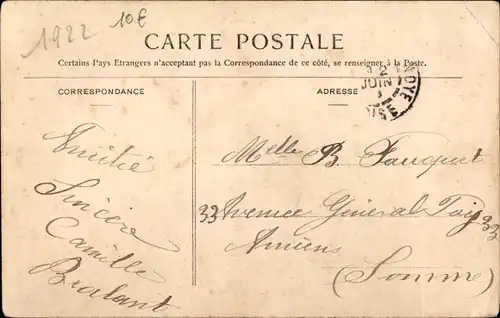 1922
10€
CARTE POSTALE
Certains Pays Etrangers n'acceptant pas la Correspondance de ce côté, se renseigner à la Poste.
CORRESPONDANCE
ADRESSE
2
JUIN
Amitié
Sincère
Camille
Melle B. Fauquet
33 Avenue Général Foy 33
Amiens
(Somme)